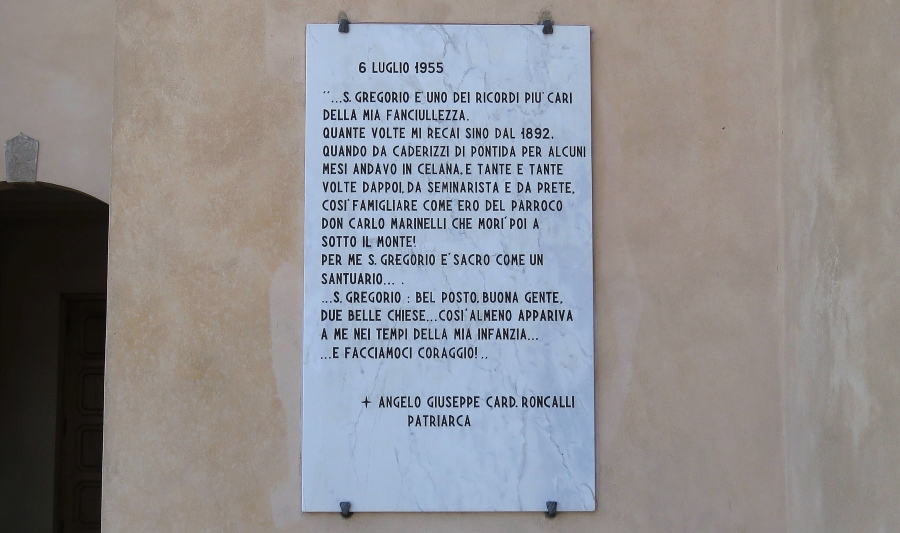 6 LUGLIO 1955
"...S. GREGORIO E' UNO DEI RICORDI PIU' CARI
DELLA MIA FANCIULLEZZA.
QUANTE VOLTE MI RECAI SINO DAL 1892.
QUANDO DA CADERIZZI DI PONTIDA PER ALCUNI
MESI ANDAVO IN CELANA, E TANTE E TANTE
VOLTE DAPPOI, DA SEMINARISTA E DA PRETE,
COSI' FAMIGLIARE COME ERO DEL PARROCO
DON CARLO MARINELLI CHE MORI' POI A
SOTTO IL MONTE!
PER ME S. GREGORIO E' SACRO COME UN
SANTUARIO... .
...S. GREGORIO : BEL POSTO, BUONA GENTE,
DUE BELLE CHIESE...COSI' ALMENO APPARIVA
A ME NEI TEMPI DELLA MIA INFANZIA...
...E FACCIAMOCI CORAGGIO! ..
+ ANGELO GIUSEPPE CARD. RONCALLI
PATRIARCA